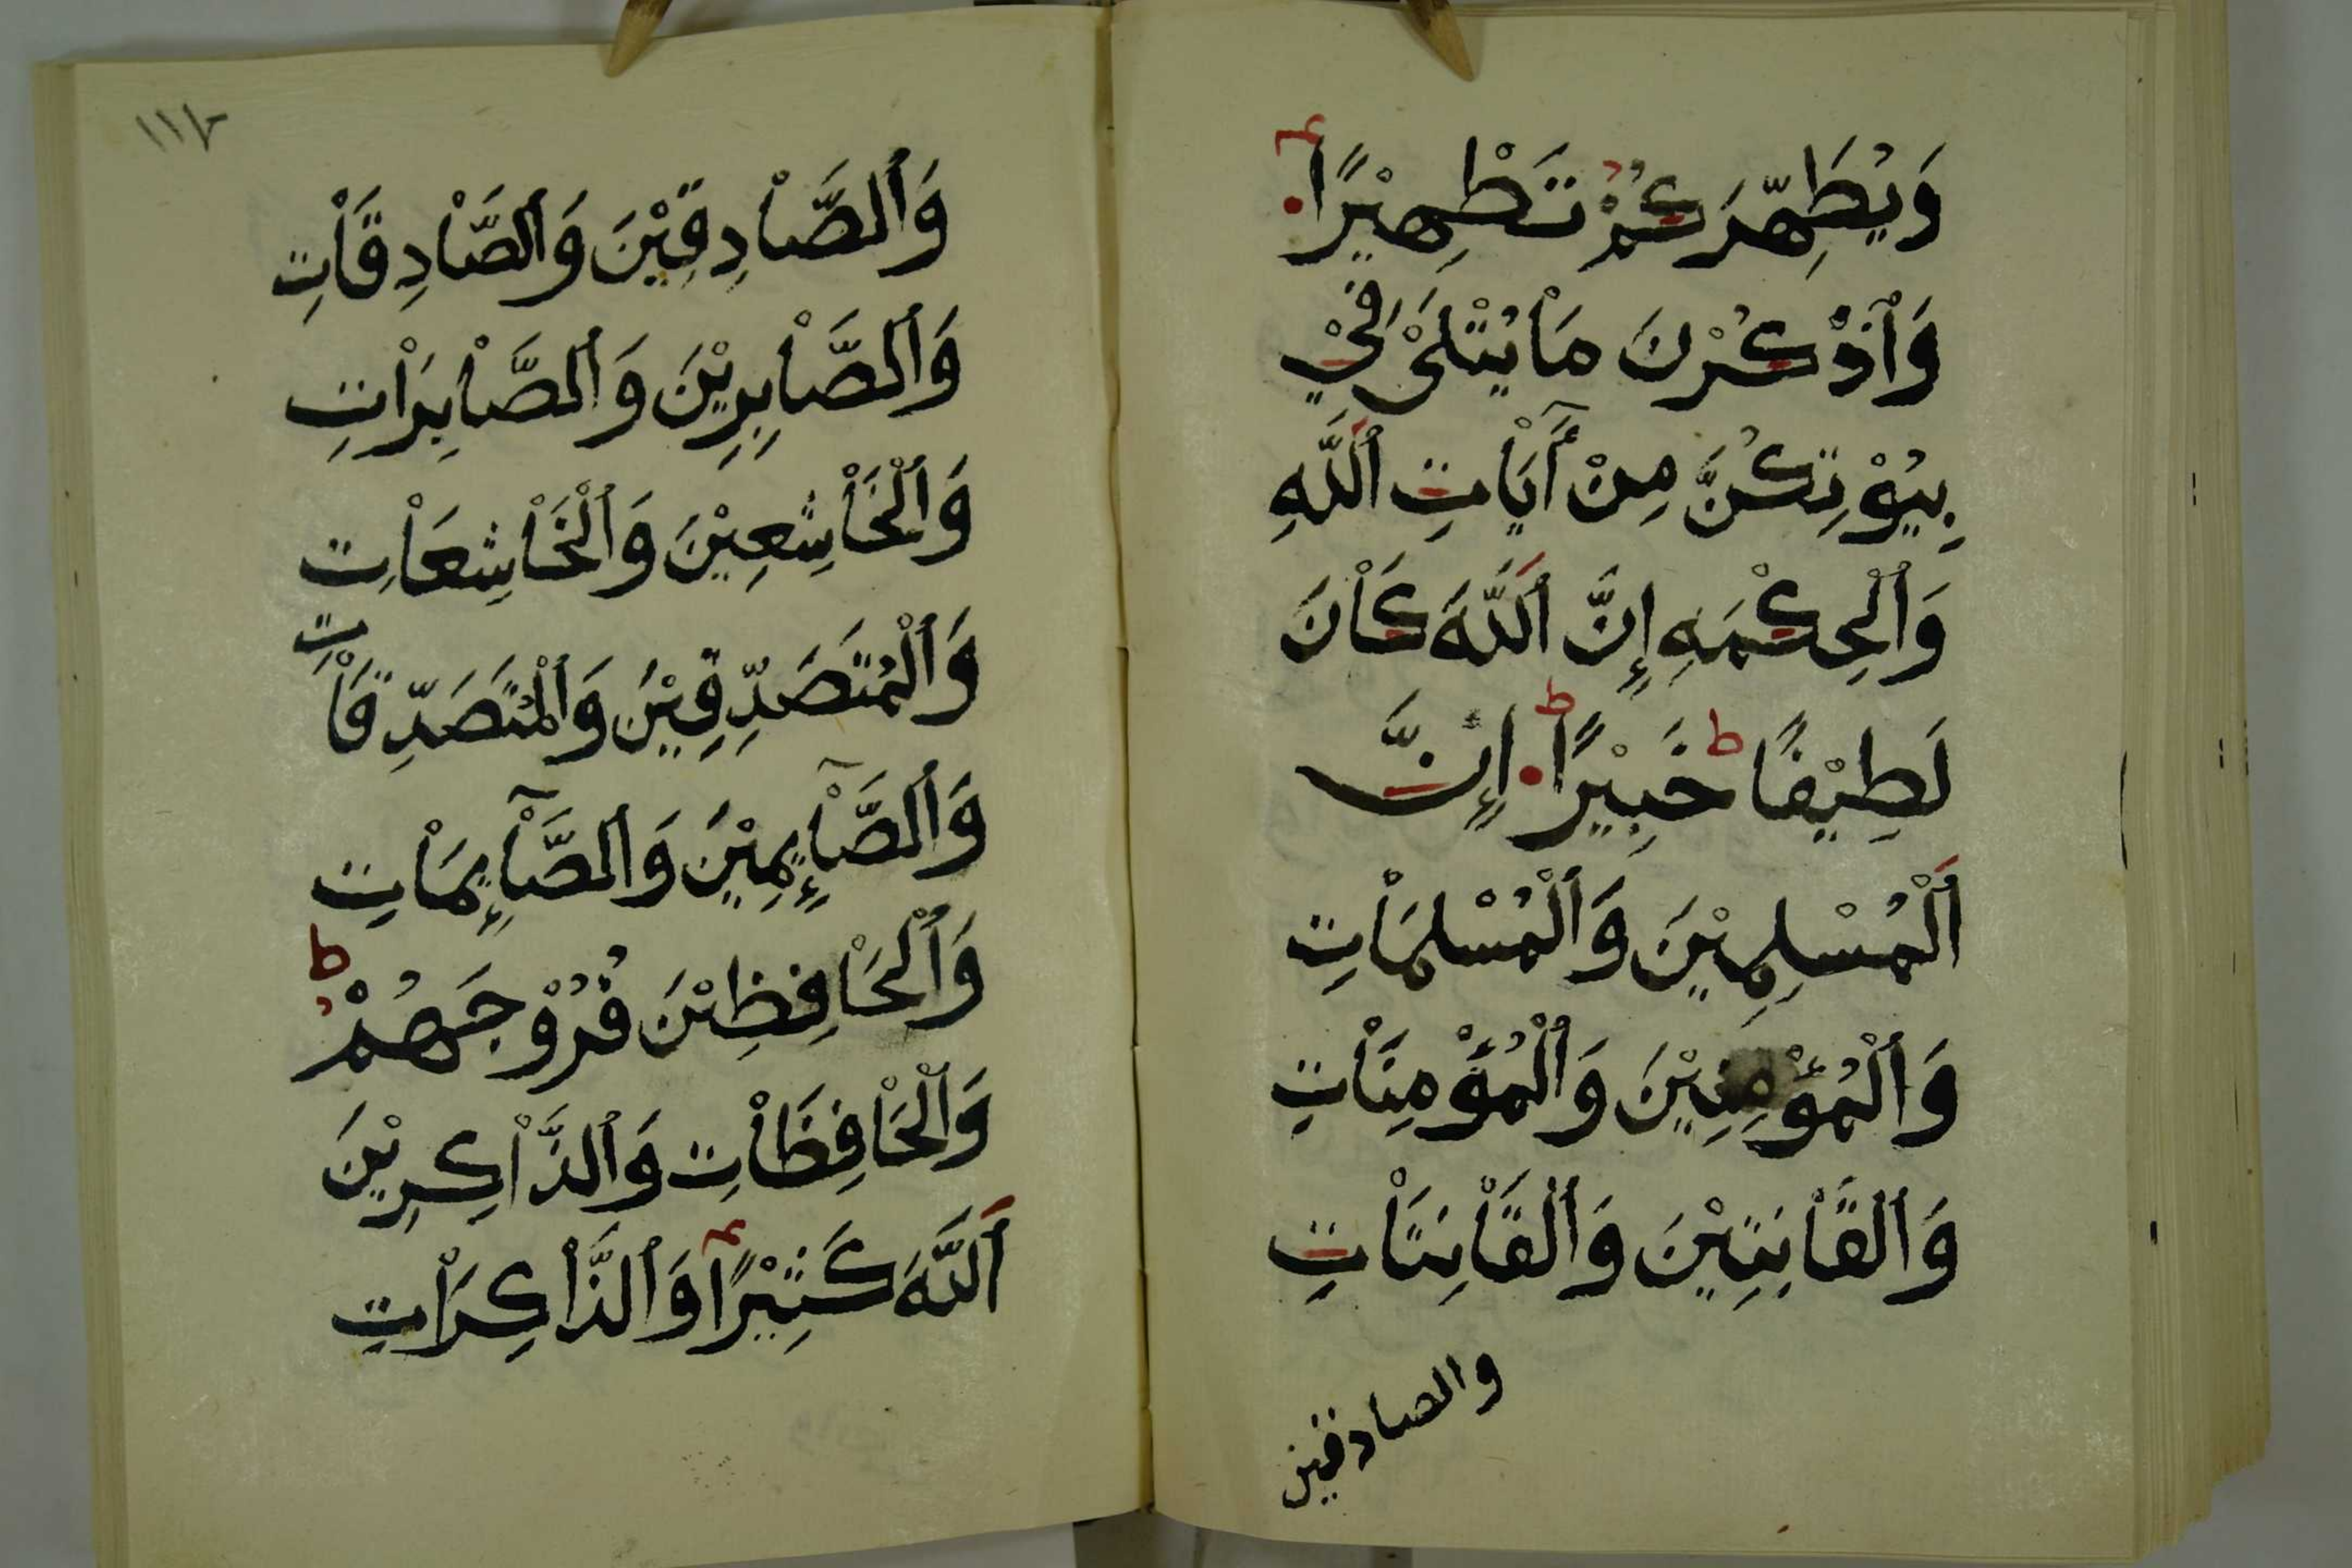 وَيُطَهِّرَكُمْ تَطْهِيْرًا
وَٱذْكُرْنَ مَاْ يُتْلَىْ فِيْ
بِيُوْتِكُنَّ مِنْ أَيَاْتِ ٱللَّهِ
وَٱلْحِكْمَهِ إِنَّ ٱللَّهَ كَاْنَ
لَطِيْفًا خَبِيْرًا إِنَّ
ٱلْمُسْلِمِيْنَ وَٱلْمُسْلِمَاْتِ
وَٱلْمُؤْمِنِيْنَ وَٱلْمُؤْمِنَاْتِ
وَٱلْقَاْنِتِيْنَ وَٱلْقَاْنِتَاْتِ
والصادقين
١١٢
وَٱلصَّاْدِقِيْنَ وَٱلصَّاْدِقَاْتِ
وَٱلصَّاْبِرِيْنَ وَٱلصَّاْبِرَاْتِ
وَٱلْخَاْشِعِيْنَ وَٱلْخَاْشِعَاْتِ
وَٱلْمُتَصَدِّقِيْنَ وَٱلْمُتَصَدِّقَاْتِ
وَٱلصَّاْئِمِيْنَ وَٱلصَّاْئِمَاْتِ
وَٱلْحَاْفِظِيْنَ فُرُوْجَهُمْ ط
وَٱلْحَاْفِظَاْتِ وَٱلذَّاْكِرِيْنَ
ٱللَّهَ كَثِيْرًا وَٱلذَّاْكِرَاْتِ